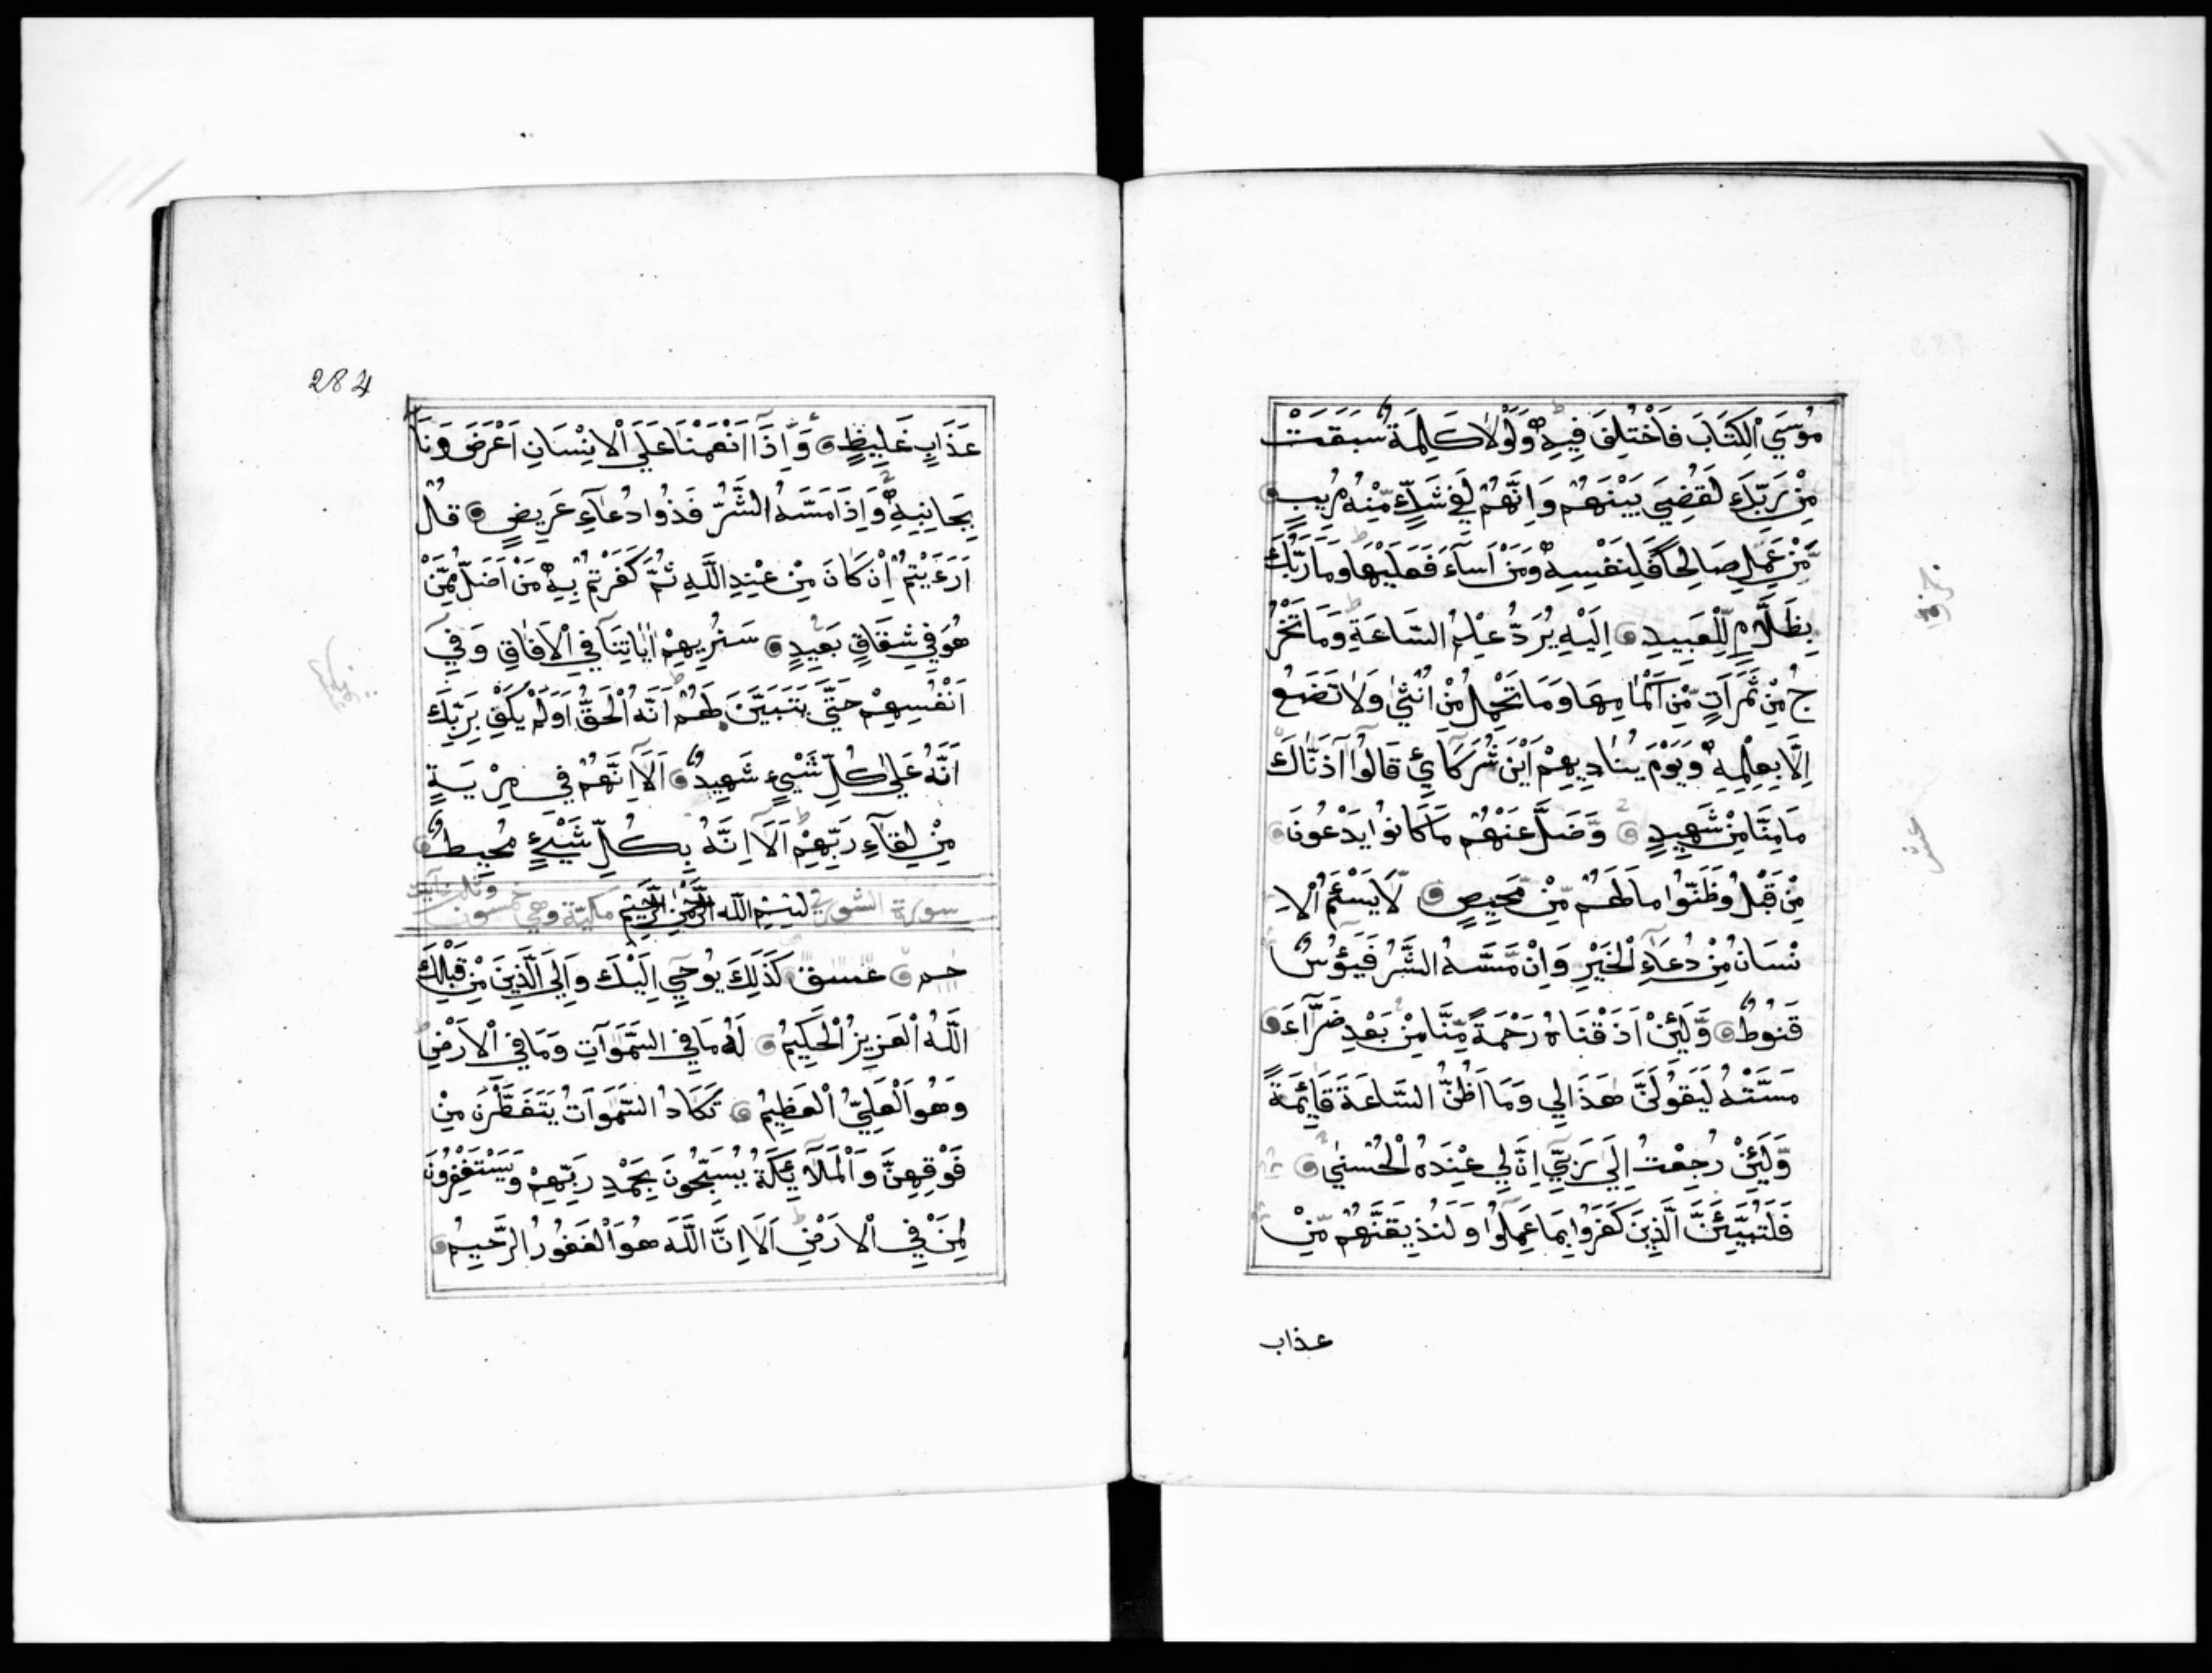 مُوسَي الْكِتَابَ فَاخْتُلِفَ فِيهِ وَلَوْلَا كَلِمَةٌ سَبَقَتْ
مِنْ رَبِّكَ لَقُضِيَ بَيْنَهُمْ وَاِنَّهُمْ لَفِي شَكٍّ مِّنْهُ مُرِيبٍ
مَّنْ عَمِلَ صَالِحًا فَلِنَفْسِهِ وَمَنْ اَسَآءَ فَعَلَيْهَا وَمَا رَبُّكَ
بِظَلَّامٍ لِّلْعَبِيدِ اِلَيْهِ يُرَدُّ عِلْمُ السَّاعَةِ وَمَا تَخْرُ
جُ مِنْ ثَمَرَاتٍ مِّنْ اَكْمَامِهَا وَمَا تَحْمِلُ مِنْ اُنْثٰي وَلَا تَضَعُ
اِلَّا بِعِلْمِهِ وَيَوْمَ يُنَادِيهِمْ اَيْنَ شُرَكَآئِي قَالُوا آذَنَّاكَ
مَا مِنَّا مِنْ شَهِيدٍ وَضَلَّ عَنْهُمْ مَا كَانُوا يَدْعُونَ
مِنْ قَبْلُ وَظَنُّوا مَا لَهُمْ مِّنْ مَّحِيصٍ لَّا يَسْئَمُ الْاِ
نْسَانُ مِنْ دُعَآءِ الْخَيْرِ وَاِنْ مَّسَّهُ الشَّرُّ فَيَئُوسٌ
قَنُوطٌ وَّلَئِنْ اَذَقْنَاهُ رَحْمَةً مِّنَّا مِنْ بَعْدِ ضَرَّآءَ
مَسَّتْهُ لَيَقُولَنَّ هَذَا لِي وَمَا اَظُنُّ السَّاعَةَ قَآئِمَةً
وَّلَئِنْ رُجِعْتُ اِلَي رَبِّي اِنَّ لِي عِنْدَهُ لَلْحُسْنٰي
فَلَنُنَبِّئَنَّ الَّذِينَ كَفَرُوا بِمَا عَمِلُوا وَلَنُذِيقَنَّهُمْ مِّنْ
عذاب
عشر
284
عَذَابٍ غَلِيظٍ وَاِذَا اَنْعَمْنَا عَلَي الْاِنْسَانِ اَعْرَضَ وَنَاٰ
بِجَانِبِهِ وَاِذَا مَسَّهُ الشَّرُّ فَذُوا دُعَآءٍ عَرِيضٍ قُلْ
اَرَءَيْتُمْ اِنْ كَانَ مِنْ عِنْدِ اللَّهِ ثُمَّ كَفَرْتُمْ بِهِ مَنْ اَضَلُّ مِمَّنْ
هُوَ فِي شِقَاقٍ بَعِيدٍ سَنُرِيهِمْ اٰيَاتِنَا فِي الْاٰفَاقِ وَفِي
اَنْفُسِهِمْ حَتَّي يَتَبَيَّنَ لَهُمْ اَنَّهُ الْحَقُّ اَوَلَمْ يَكْفِ بِرَبِّكَ
اَنَّهُ عَلٰي كُلِّ شَيْءٍ شَهِيدٌ اَلَا اِنَّهُمْ فِي مِرْيَةٍ
مِنْ لِقَآءِ رَبِّهِمْ اَلَا اِنَّهُ بِكُلِّ شَيْءٍ مُحِيطٌ
سورة الشوري بسم الله الرحمن الرحيم مكية وهي خمسون وثلث آيت
حم عسق كَذَلِكَ يُوحِي اِلَيْكَ وَاِلَي الَّذِينَ مِنْ قَبْلِكَ
اللَّهُ الْعَزِيزُ الْحَكِيمُ لَهُ مَا فِي السَّمَوَاتِ وَمَا فِي الْاَرْضِ
وَهُوَ الْعَلِيُّ الْعَظِيمُ تَكَادُ السَّمَوَاتُ يَتَفَطَّرْنَ مِنْ
فَوْقِهِنَّ وَالْمَلَآئِكَةُ يُسَبِّحُونَ بِحَمْدِ رَبِّهِمْ وَيَسْتَغْفِرُونَ
لِمَنْ فِي الْاَرْضِ اَلَا اِنَّ اللَّهَ هُوَ الْغَفُورُ الرَّحِيمُ